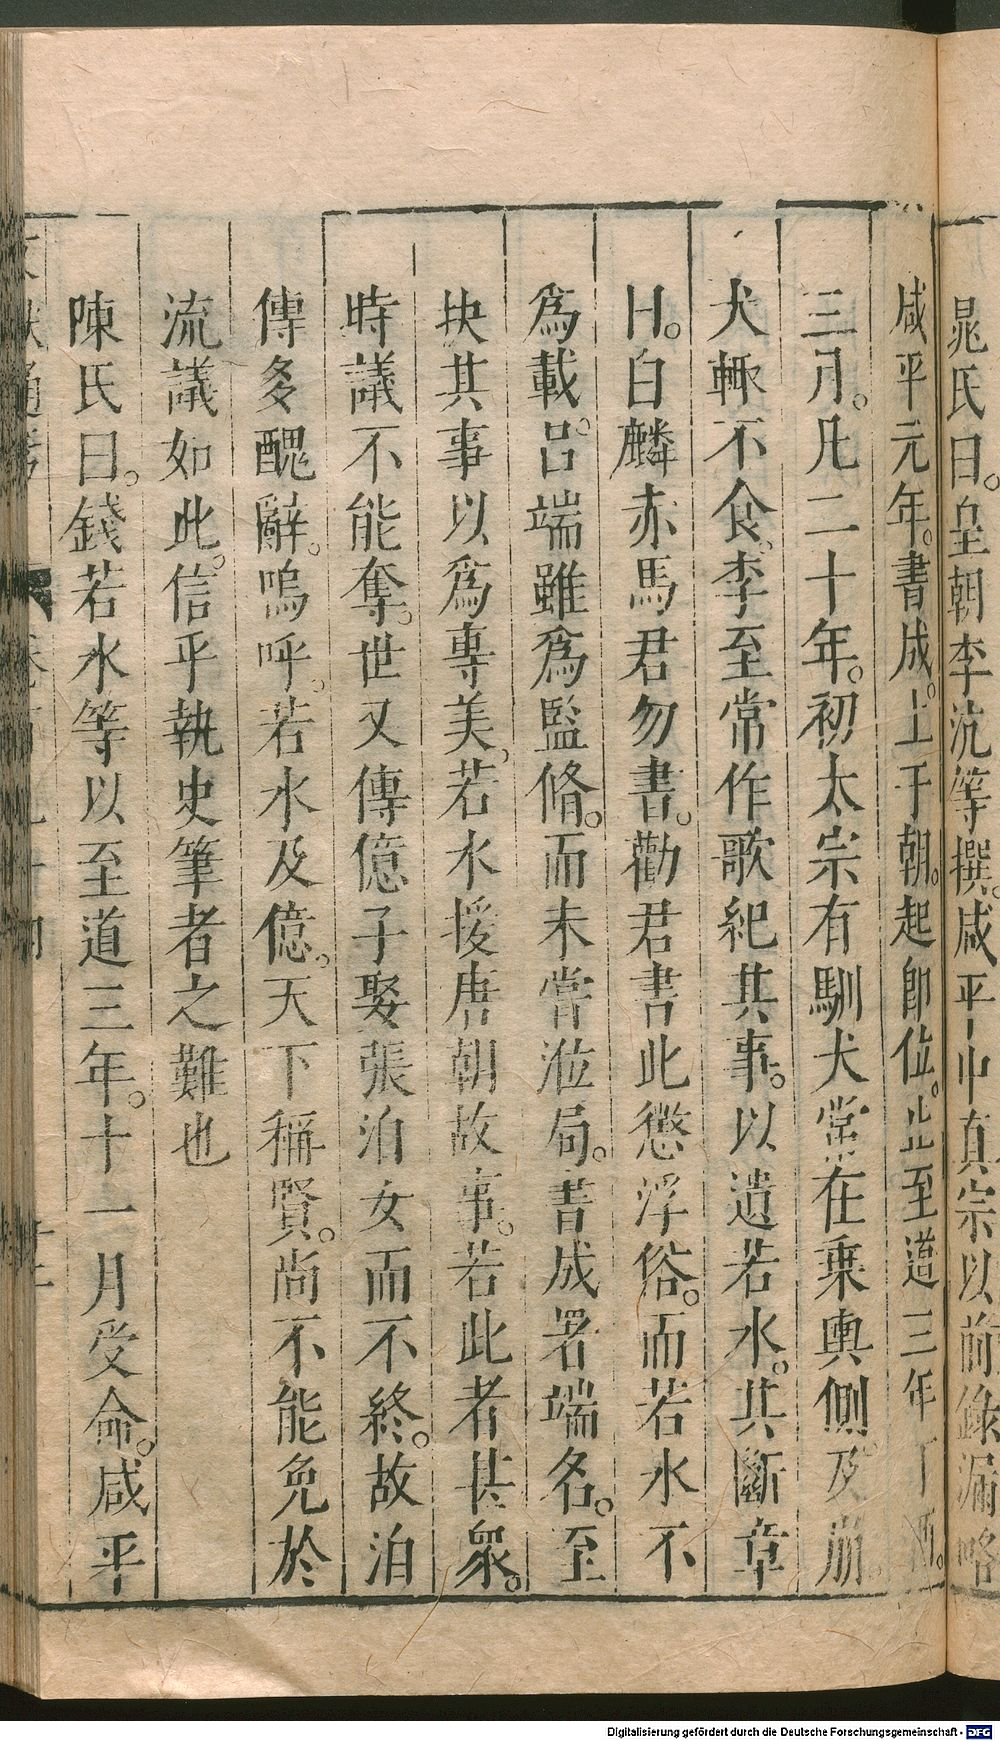 晁氏曰。皇朝李沆等撰。咸平中真宗以前錄漏略
咸平元年。書成。上于朝。起即位。止至道三年丁酉。
三月。凡二十年。初太宗有馴犬常在乗輿側。及崩
犬輙不食。李至常作歌紀其事。以遺若水。其斷章
曰。白麟赤馬君勿書。勸君書此懲浮俗。而若水不
爲載。呂端雖爲監脩。而未嘗涖局。書成署端名。至
抉其事以爲專美。若水援唐朝故事。若此者甚衆。
時議不能奪。世又傳億子娶張洎女而不終。故洎
傳多醜辭。嗚呼。若水及億。天下稱賢。尚不能免於
流議如此。信乎執史筆者之難也
陳氏曰。錢若水等以至道三年。十一月受命。咸平
文獻通考